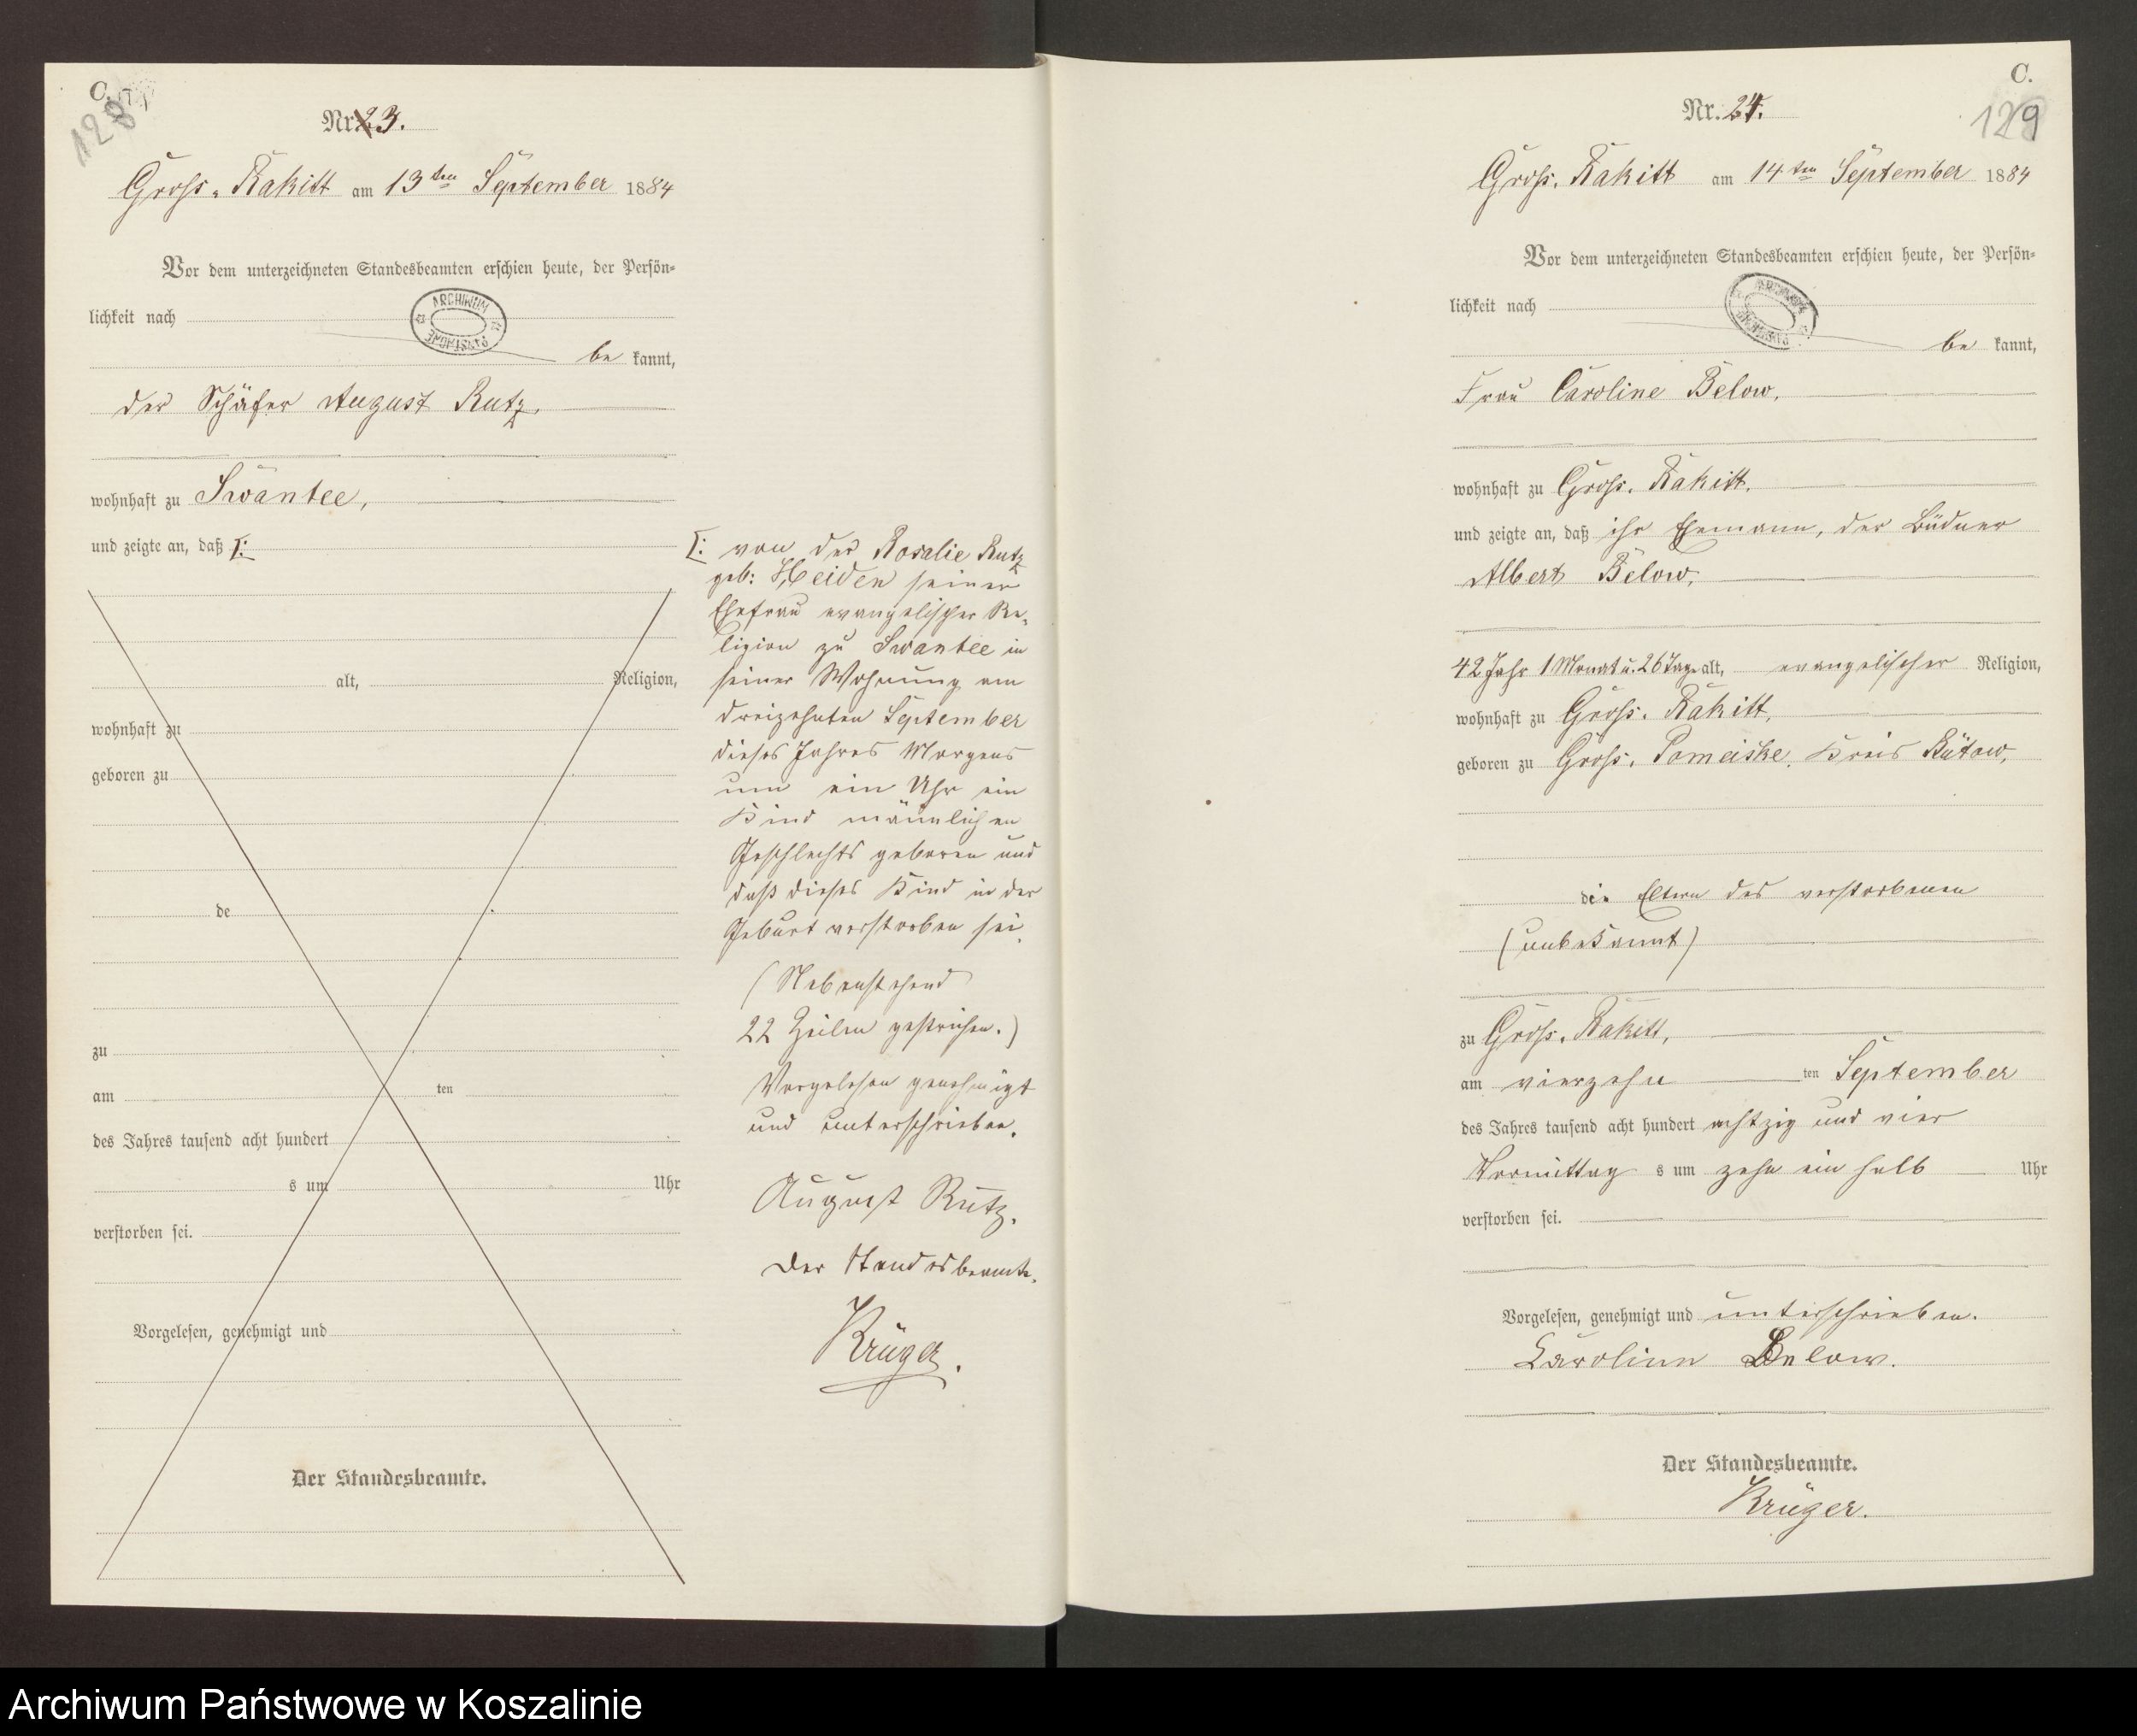 C.
128
Nr. 23.
Gross. Rakitt am 13ten September 1884
Vor dem unterzeichneten Standesbeamten erschien heute, der Persön-
lichkeit nach
ARCHIWUM PAŃSTWOWE
be kannt,
der Schäfer August Rutz,
wohnhaft zu Swantee,
und zeigte an, daß [:
alt, Religion,
wohnhaft zu
geboren zu
de
zu
am ten
des Jahres tausend acht hundert
s um Uhr
verstorben sei.
Vorgelesen, genehmigt und
Der Standesbeamte.
[: von der Rosalie Rutz
geb: Heiden seiner
Ehefrau evangelischer Re-
ligion zu Swantee in
seiner Wohnung am
dreizehnten September
dieses Jahres Morgens
um ein Uhr ein
Kind männlichen
Geschlechts geboren und
daß dieses Kind in der
Geburt verstorben sei.
(Nebenstehend
22 Zeilen gestrichen.)
Vorgelesen genehmigt
und unterschrieben.
August Rutz.
Der Standesbeamte.
Krüger.
C.
129
Nr. 24.
Gross. Rakitt am 14ten September 1884
Vor dem unterzeichneten Standesbeamten erschien heute, der Persön-
lichkeit nach
ARCHIWUM PAŃSTWOWE
be kannt,
Frau Caroline Below,
wohnhaft zu Gross. Rakitt,
und zeigte an, daß ihr Ehemann, der Büdner
Albert Below,
42 Jahr 1 Monat u. 26 Tage alt, evangelischer Religion,
wohnhaft zu Gross. Rakitt,
geboren zu Gross. Pomeiske, Kreis Bütow,
die Eltern des verstorbenen
(unbekannt)
zu Gross. Rakitt,
am vierzehn ten September
des Jahres tausend acht hundert achtzig und vier
Vormittag s um zehn ein halb Uhr
verstorben sei.
Vorgelesen, genehmigt und unterschrieben.
Caroline Below.
Der Standesbeamte.
Krüger.
Archiwum Państwowe w Koszalinie